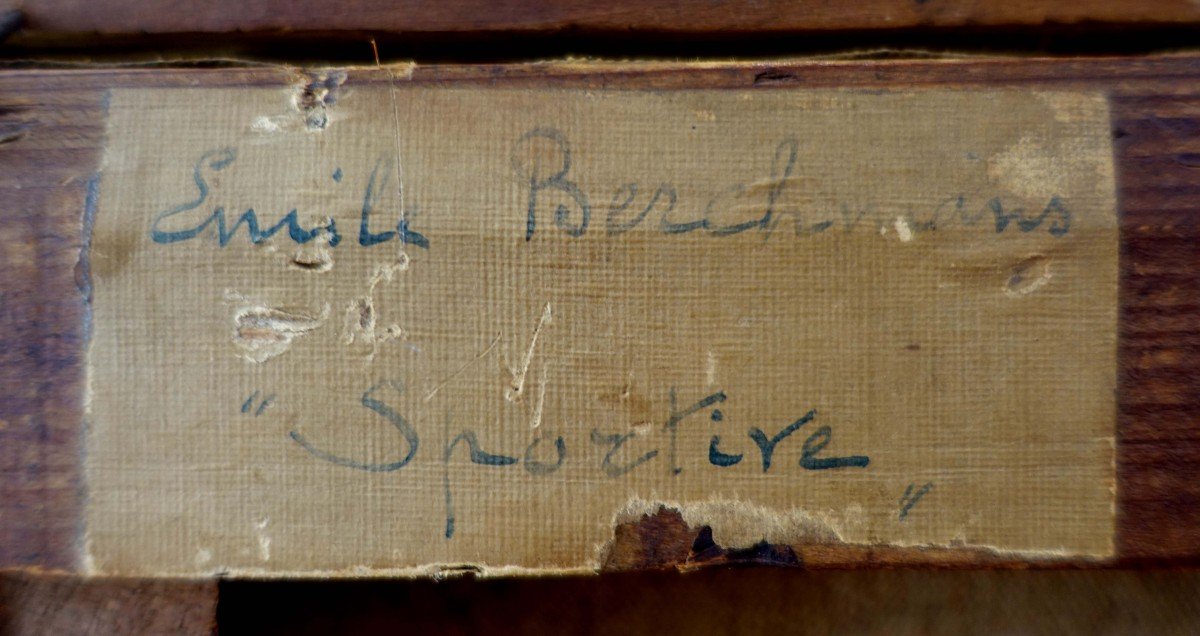 Emile Berchmans
"Sportive„